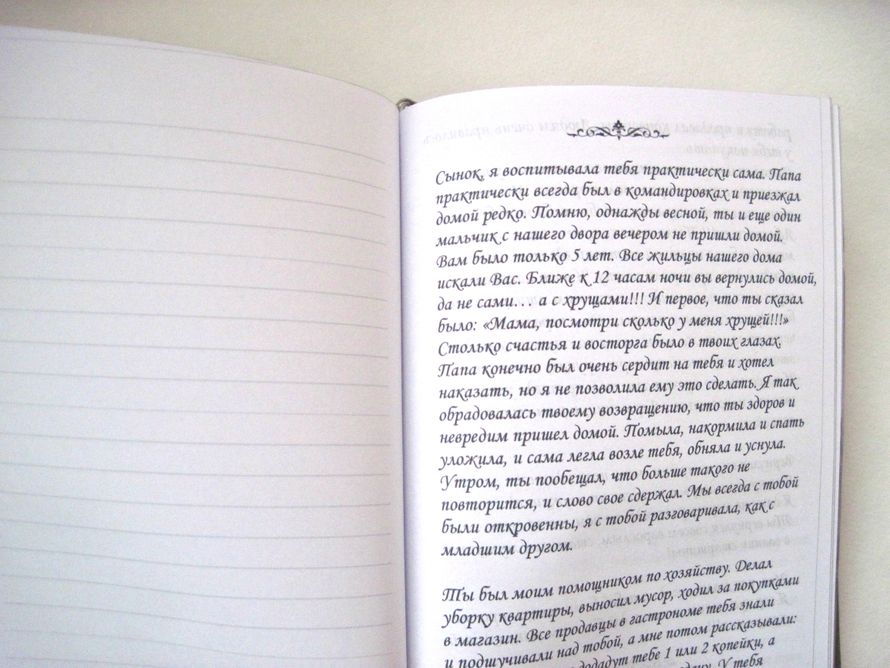 Сынок, я воспитывала тебя практически сама. Папа
практически всегда был в командировках и приезжал
домой редко. Помню, однажды весной, ты и еще один
мальчик с нашего двора вечером не пришли домой.
Вам было только 5 лет. Все жильцы нашего дома
искали Вас. Ближе к 12 часам ночи вы вернулись домой,
да не сами... а с хрущами!!! И первое, что ты сказал
было: «Мама, посмотри сколько у меня хрущей!!!»
Столько счастья и восторга было в твоих глазах.
Папа конечно был очень сердит на тебя и хотел
наказать, но я не позволила ему это сделать. Я так
обрадовалась твоему возвращению, что ты здоров и
невредим пришел домой. Помыла, накормила и спать
уложила, и сама легла возле тебя, обняла и уснула.
Утром, ты пообещал, что больше такого не
повторится, и слово свое сдержал. Мы всегда с тобой
были откровенны, я с тобой разговаривала, как с
младшим другом.
Ты был моим помощником по хозяйству. Делал
уборку квартиры, выносил мусор, ходил за покупками
в магазин. Все продавцы в гастрономе тебя знали
и подшучивали над тобой, а мне потом рассказывали:
додадут тебе 1 или 2 копейки, а
У тебя